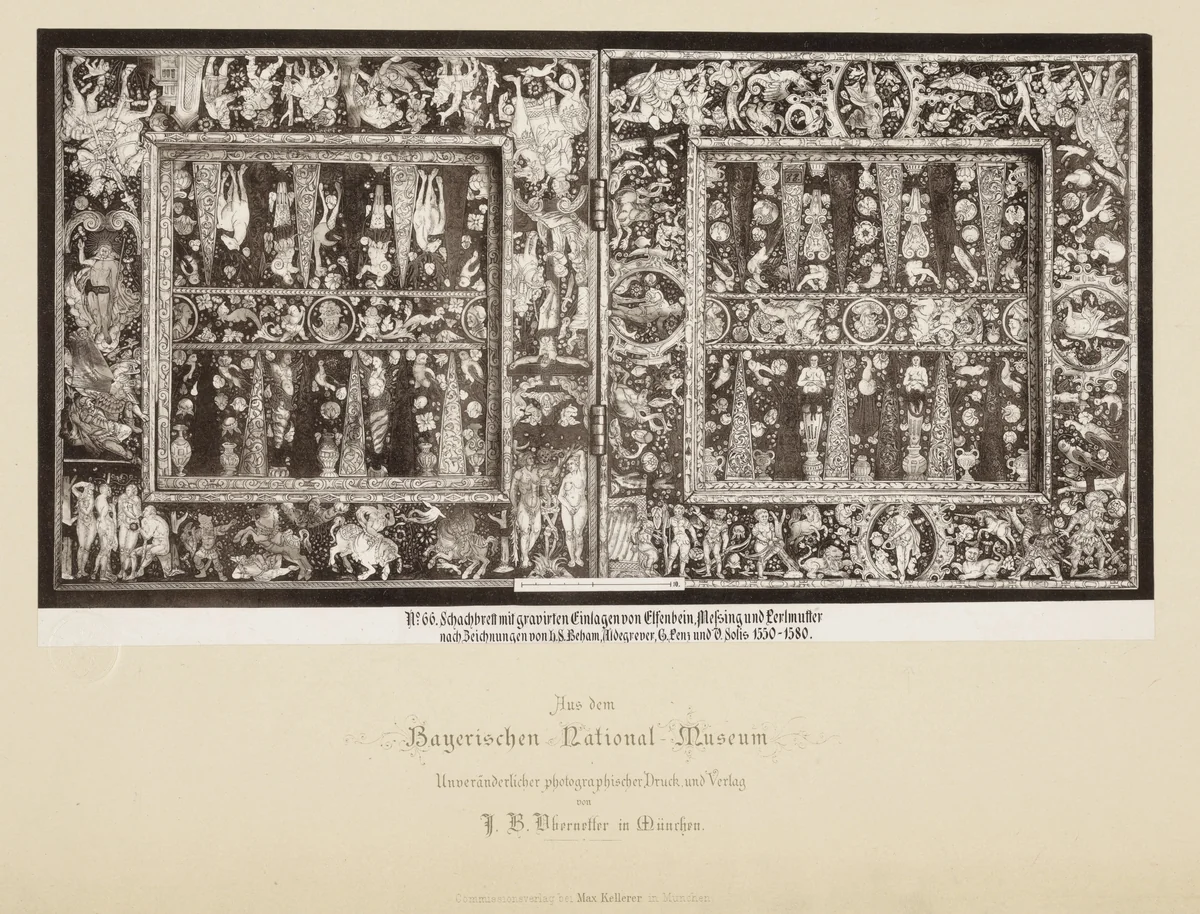 No 66. Schachbrett mit gravirten Einlagen von Elfenbein, Meſsing und Perlmutter
nach Zeichnungen von H. S. Beham, Aldegrever, G. Penz und V. Solis 1550-1580.
Aus dem
Bayerischen National-Museum
Unveränderlicher photographischer Druck und Verlag
von
J. B. Obernetter in München.
Commissionsverlag bei Max Kellerer in München